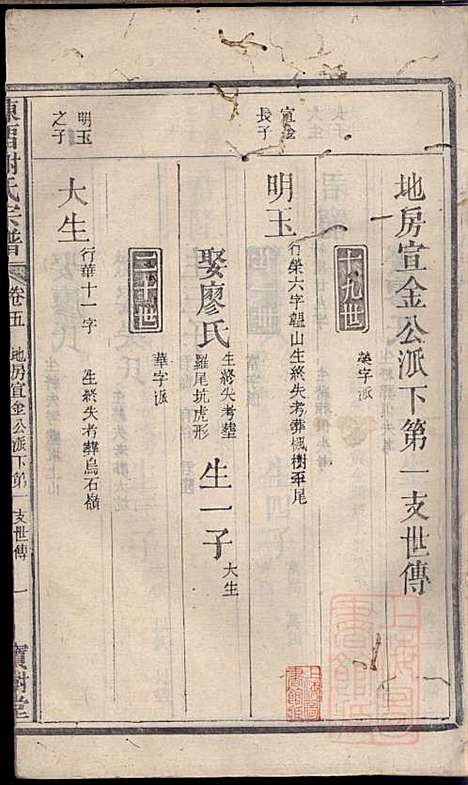 地房宣金公派下第一支世傳
十九世
榮字派
宣金
長子
明玉
行榮六字韞山生終失考葬楓樹坪尾
娶廖氏
生終失考塟
羅尾坑虎形
生一子
大生
二十世
華字派
明玉
之子
大生
行華十一字
生終失考葬烏石嶺
謝氏宗譜
卷五
地房宣金公派下第一支世傳
一
寶樹堂